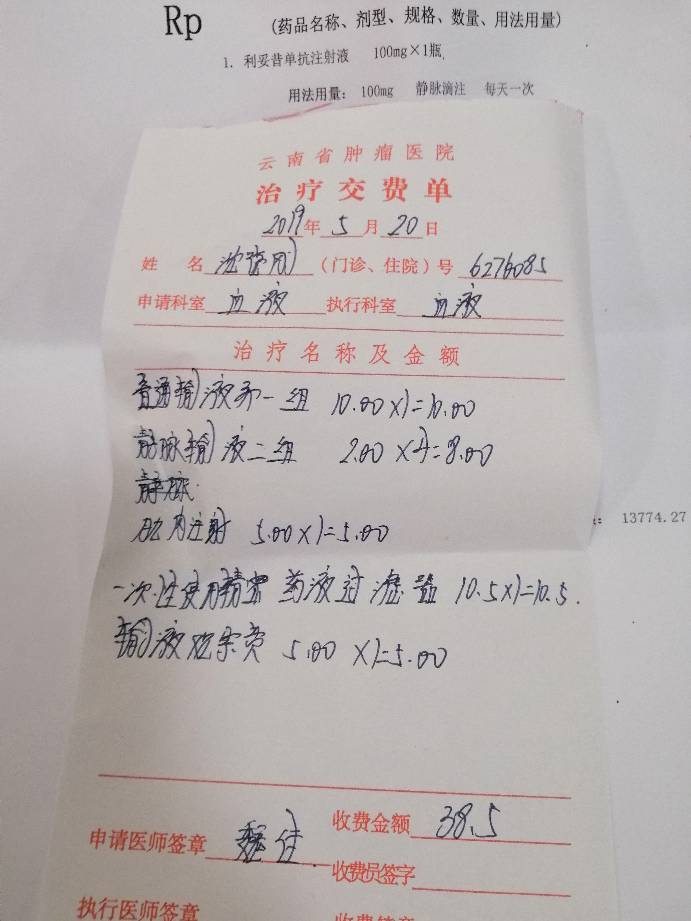 Rp
(药品名称、剂型、规格、数量、用法用量)
1. 利妥昔单抗注射液 100mg×1瓶
用法用量: 100mg 静脉滴注 每天一次
云南省肿瘤医院
治疗交费单
2019年5月20日
姓 名 (门诊、住院)号 6276085
申请科室 血液 执行科室 血液
治疗名称及金额
13774.27
普通输液第一组 10.00×1=10.00
静脉输液二组 2.00×4=8.00
静脉
肌肉注射 5.00×1=5.00
一次性使用精密药液过滤器 10.5×1=10.5
输液观察费 5.00×1=5.00
申请医师签章 收费金额 38.5
收费员签字
执行医师签章